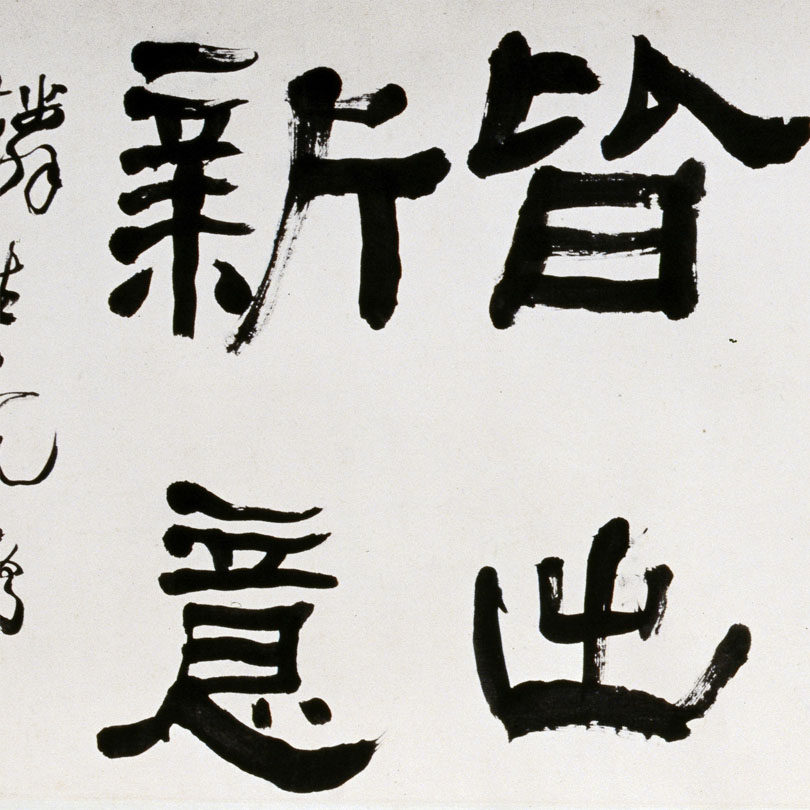 皆出
新意